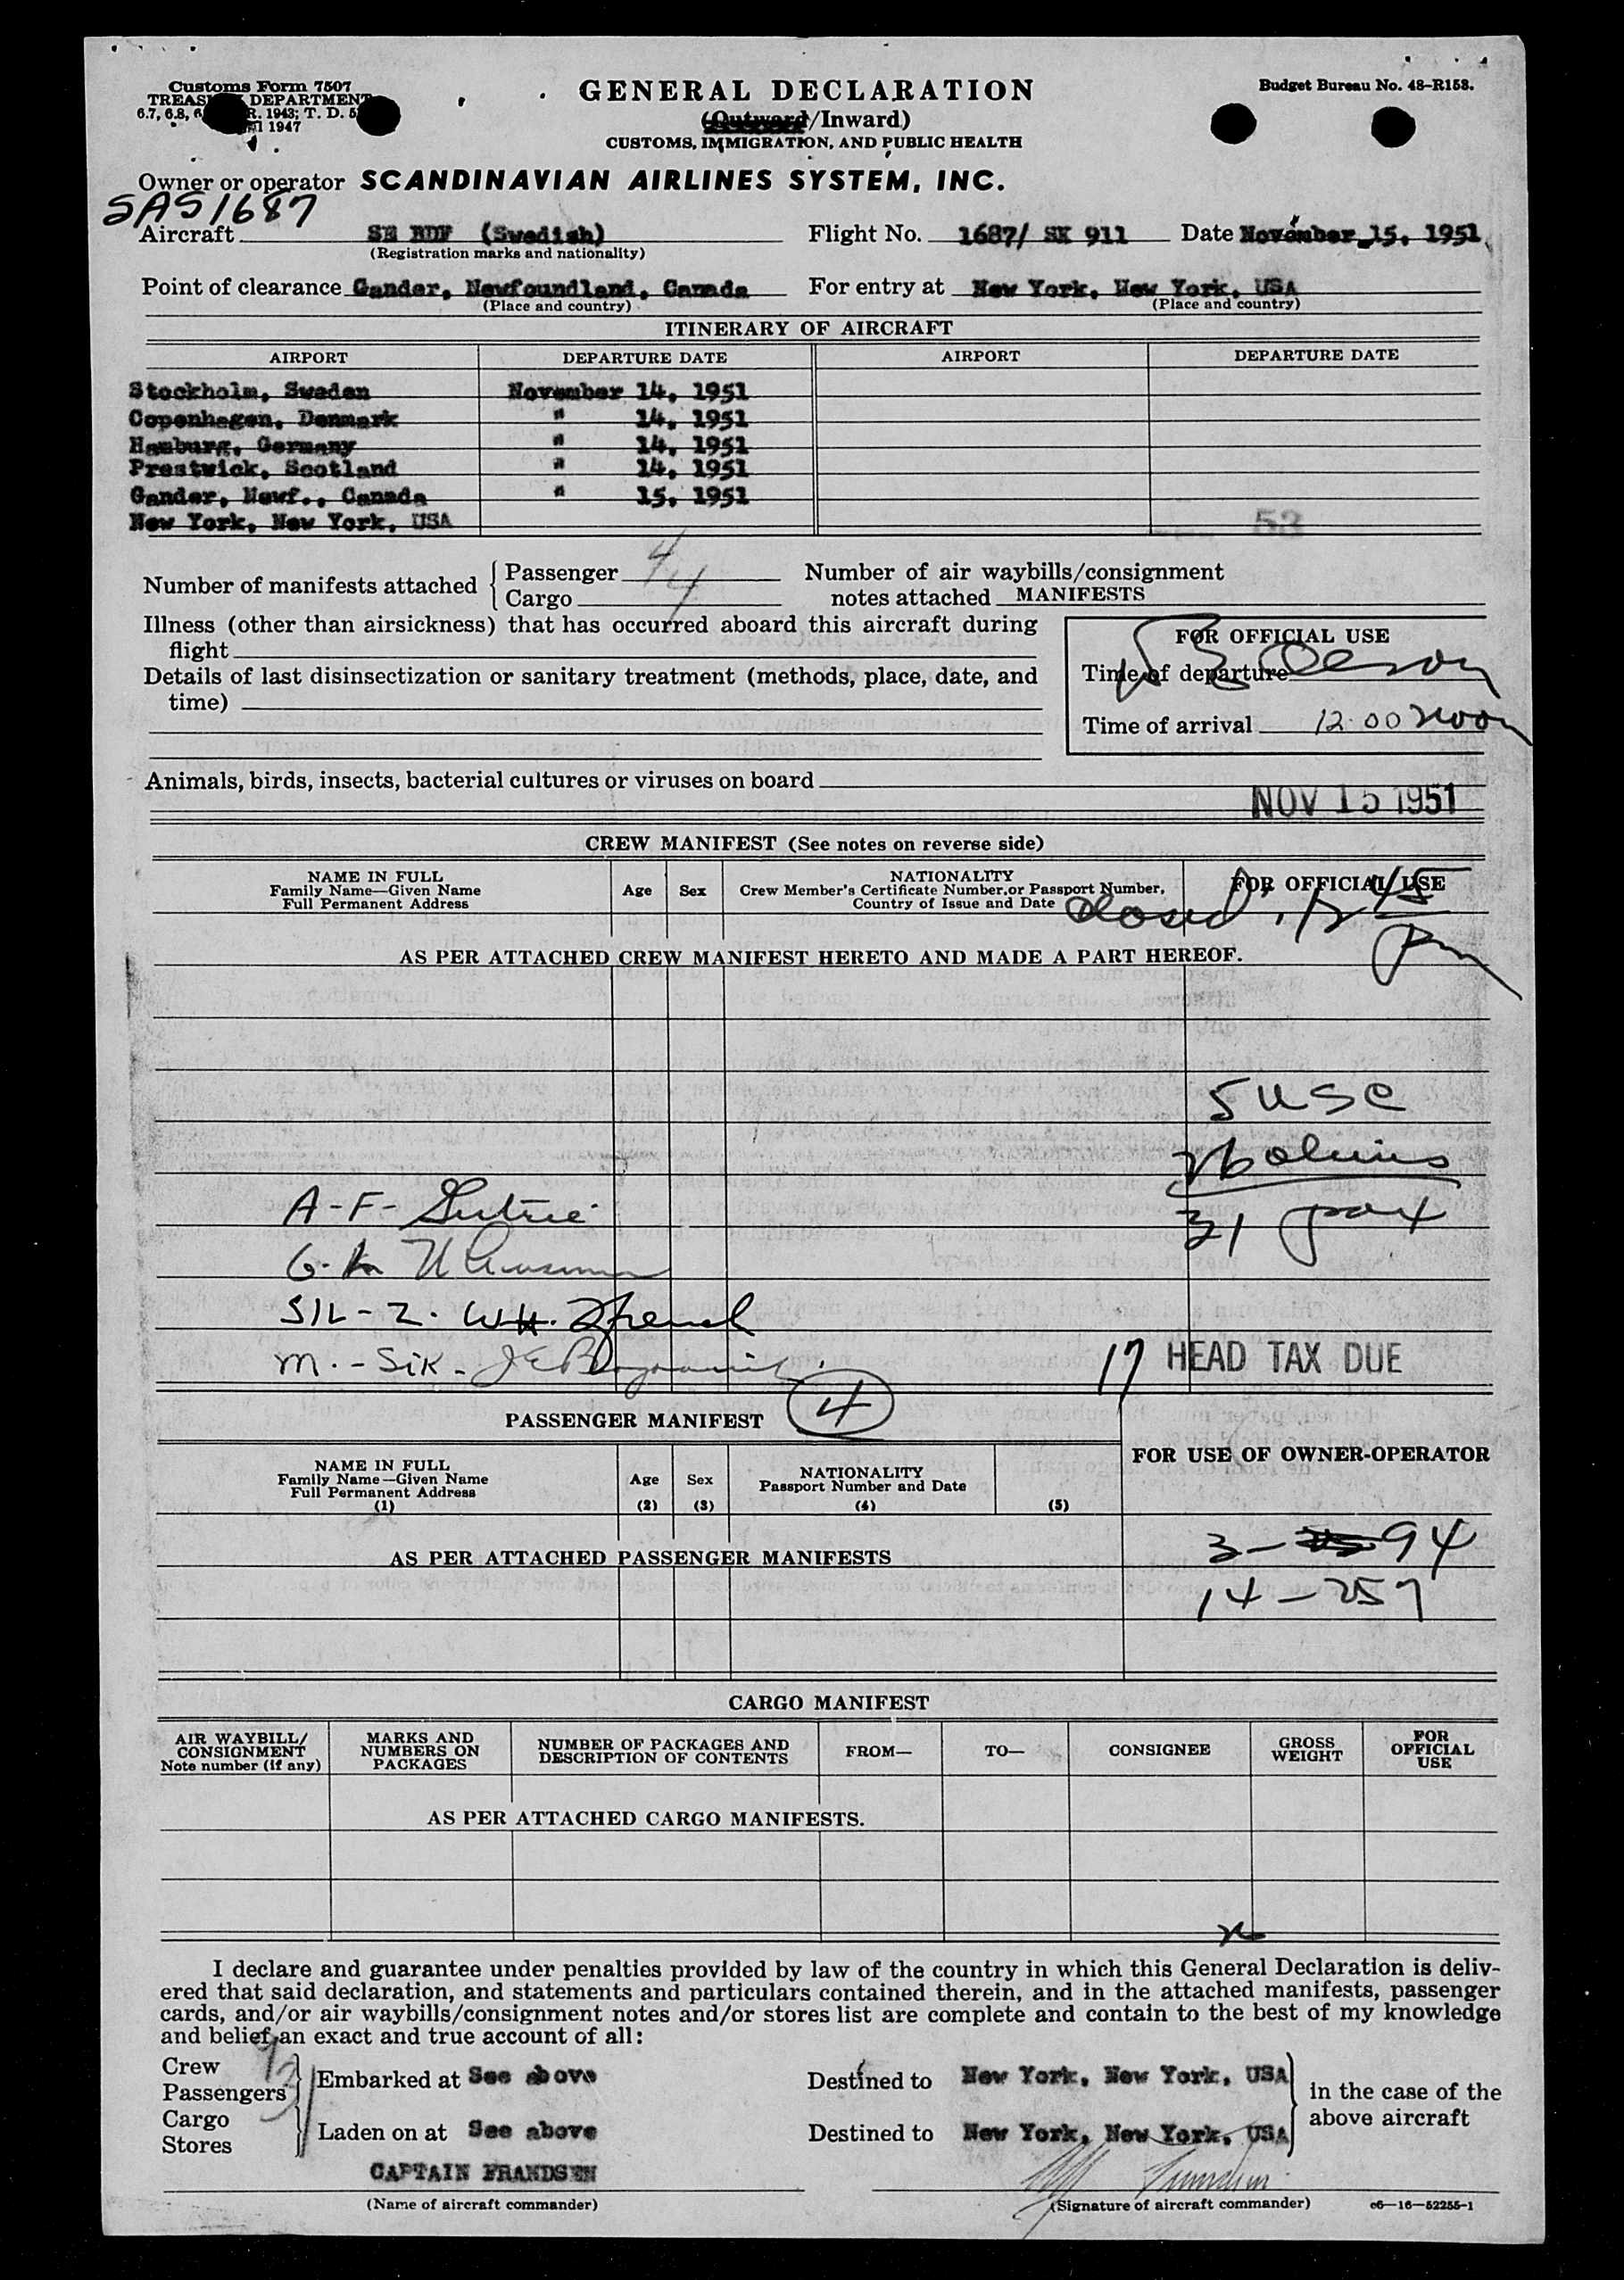 Customs Form 7507
TREAS DEPARTMENT
6.7, 6.8, 6 R. 1943; T. D. 5
1947
GENERAL DECLARATION
(Outward/Inward)
CUSTOMS, IMMIGRATION, AND PUBLIC HEALTH
Budget Bureau No. 48-R153.
Owner or operator SCANDINAVIAN AIRLINES SYSTEM, INC.
SAS1687
Aircraft SE BDF (Swedish) Flight No. 1687/ SK 911 Date November 15, 1951
(Registration marks and nationality)
Point of clearance Gander, Newfoundland, Canada For entry at New York, New York, USA
(Place and country) (Place and country)
ITINERARY OF AIRCRAFT
AIRPORT DEPARTURE DATE AIRPORT DEPARTURE DATE
Stockholm, Sweden November 14, 1951
Copenhagen, Denmark " 14, 1951
Hamburg, Germany " 14, 1951
Prestwick, Scotland " 14, 1951
Gander, Newf., Canada " 15, 1951
New York, New York, USA
53
Number of manifests attached { Passenger 4
Cargo 4
Number of air waybills/consignment
notes attached MANIFESTS
Illness (other than airsickness) that has occurred aboard this aircraft during
flight
Details of last disinsectization or sanitary treatment (methods, place, date, and
time)
FOR OFFICIAL USE
Time of departure
Time of arrival 12:00 noon
Animals, birds, insects, bacterial cultures or viruses on board
NOV 15 1951
CREW MANIFEST (See notes on reverse side)
NAME IN FULL
Family Name—Given Name
Full Permanent Address
Age Sex
NATIONALITY
Crew Member's Certificate Number, or Passport Number,
Country of Issue and Date
FOR OFFICIAL USE
closed 12 45
pm
AS PER ATTACHED CREW MANIFEST HERETO AND MADE A PART HEREOF.
5 USC
26 aliens
31 pax
A-F-
G.
S/L-2. W.H. French
M.-Sik-
17 HEAD TAX DUE
PASSENGER MANIFEST 4
FOR USE OF OWNER-OPERATOR
NAME IN FULL
Family Name—Given Name
Full Permanent Address
(1)
Age
(2)
Sex
(3)
NATIONALITY
Passport Number and Date
(4)
(5)
3- 94
AS PER ATTACHED PASSENGER MANIFESTS
14-257
CARGO MANIFEST
AIR WAYBILL/
CONSIGNMENT
Note number (if any)
MARKS AND
NUMBERS ON
PACKAGES
NUMBER OF PACKAGES AND
DESCRIPTION OF CONTENTS
FROM—
TO—
CONSIGNEE
GROSS
WEIGHT
FOR
OFFICIAL
USE
AS PER ATTACHED CARGO MANIFESTS.
I declare and guarantee under penalties provided by law of the country in which this General Declaration is deliv-
ered that said declaration, and statements and particulars contained therein, and in the attached manifests, passenger
cards, and/or air waybills/consignment notes and/or stores list are complete and contain to the best of my knowledge
and belief, an exact and true account of all:
Crew
Passengers
Embarked at See above Destined to New York, New York, USA
Cargo
Stores
Laden on at See above Destined to New York, New York, USA
in the case of the
above aircraft
CAPTAIN FRANDSEN
(Name of aircraft commander) (Signature of aircraft commander) c6—16—52255-1